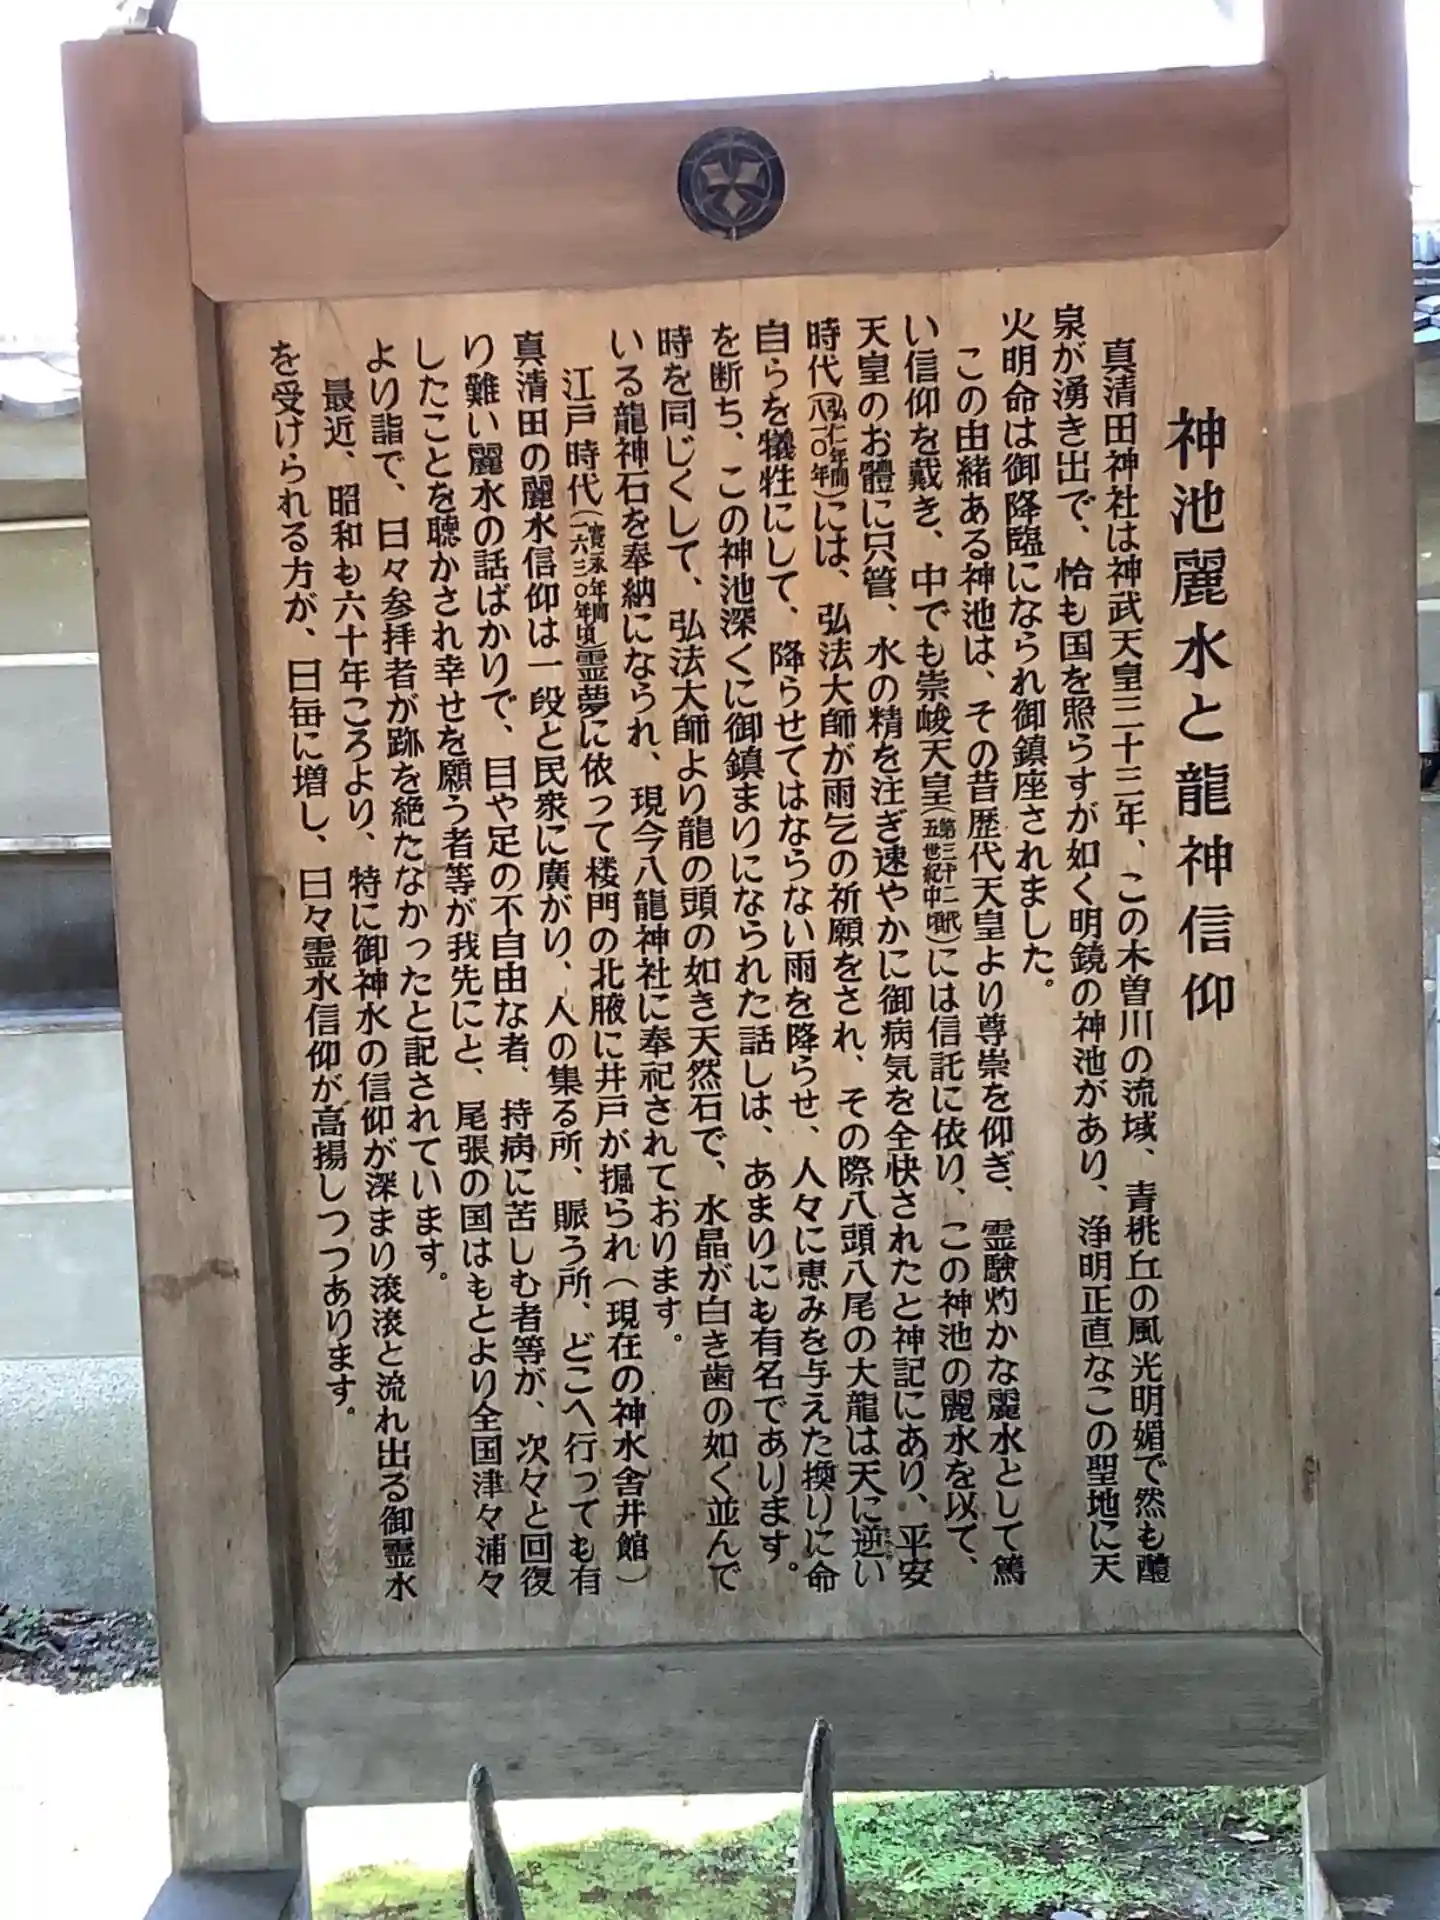 神池麗水と龍神信仰
真清田神社は神武天皇三十三年、この木曽川の流域、青桃丘の風光明媚で然も醴
泉が湧き出で、恰も国を照らすが如く明鏡の神池があり、浄明正直なこの聖地に天
火明命は御降臨になられ御鎮座されました。
この由緒ある神池は、その昔歴代天皇より尊崇を仰ぎ、霊験灼かな麗水として篤
い信仰を戴き、中でも崇峻天皇(第三十二代五世紀中頃)には信託に依り、この神池の麗水を以て、
天皇のお體に只管、水の精を注ぎ速やかに御病気を全快されたと神記にあり、平安
時代(弘仁年間八一〇年)には、弘法大師が雨乞の祈願をされ、その際八頭八尾の大龍は天に逆い
自らを犠牲にして、降らせてはならない雨を降らせ、人々に恵みを与えた換りに命
を断ち、この神池深くに御鎮まりになられた話しは、あまりにも有名であります。
時を同じくして、弘法大師より龍の頭の如き天然石で、水晶が白き歯の如く並んで
いる龍神石を奉納になられ、現今八龍神社に奉祀されております。
江戸時代(寛永年間一六三〇年頃)霊夢に依って楼門の北腋に井戸が掘られ(現在の神水舎井館)
真清田の麗水信仰は一段と民衆に廣がり、人の集る所、賑う所、どこへ行っても有
り難い麗水の話ばかりで、目や足の不自由な者、持病に苦しむ者等が、次々と回復
したことを聴かされ幸せを願う者等が我先にと、尾張の国はもとより全国津々浦々
より詣で、日々参拝者が跡を絶たなかったと記されています。
最近、昭和も六十年ころより、特に御神水の信仰が深まり滾滾と流れ出る御霊水
を受けられる方が、日毎に増し、日々霊水信仰が高揚しつつあります。